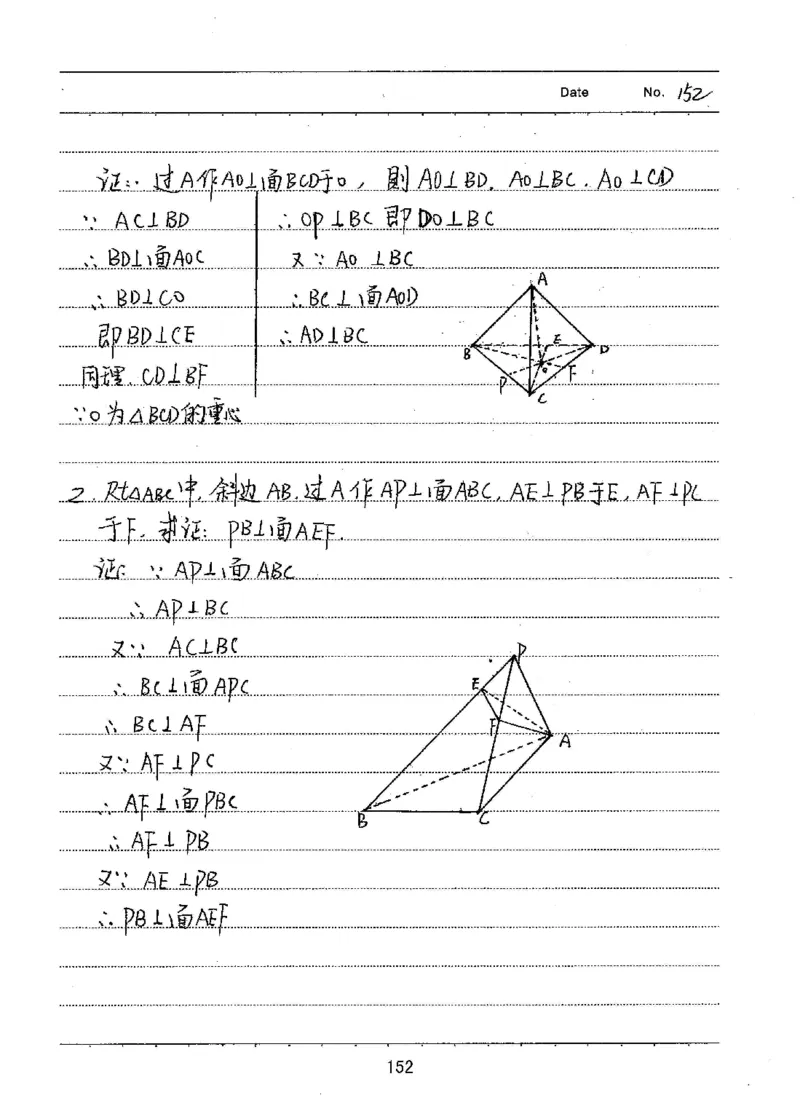 Date No. 152
证:∵ 过A作AO⊥面BCD于O, 则 AO⊥BD. AO⊥BC. AO⊥CD
∵ AC⊥BD
∴ BD⊥面AOC
∴ BD⊥CO
即BD⊥CE
同理. CD⊥BF
∵O为△BCD的重心
∴ OP⊥BC 即DO⊥BC
又∵ AO ⊥BC
∴ BC⊥面AOD
∴ AD⊥BC
A
B
E
D
O
P
F
C
2. Rt△ABC中, 斜边 AB. 过A作 AP⊥面ABC, AE⊥PB于E, AF⊥PC
于F. 求证: PB⊥面AEF.
证: ∵ AP⊥面ABC
∴ AP⊥BC
又∵ AC⊥BC
∴ BC⊥面APC
∴ BC⊥AF
又∵ AF⊥PC
∴ AF⊥面PBC
∴ AF⊥PB
又∵ AE⊥PB
∴ PB⊥面AEF
P
E
F
A
B
C
152